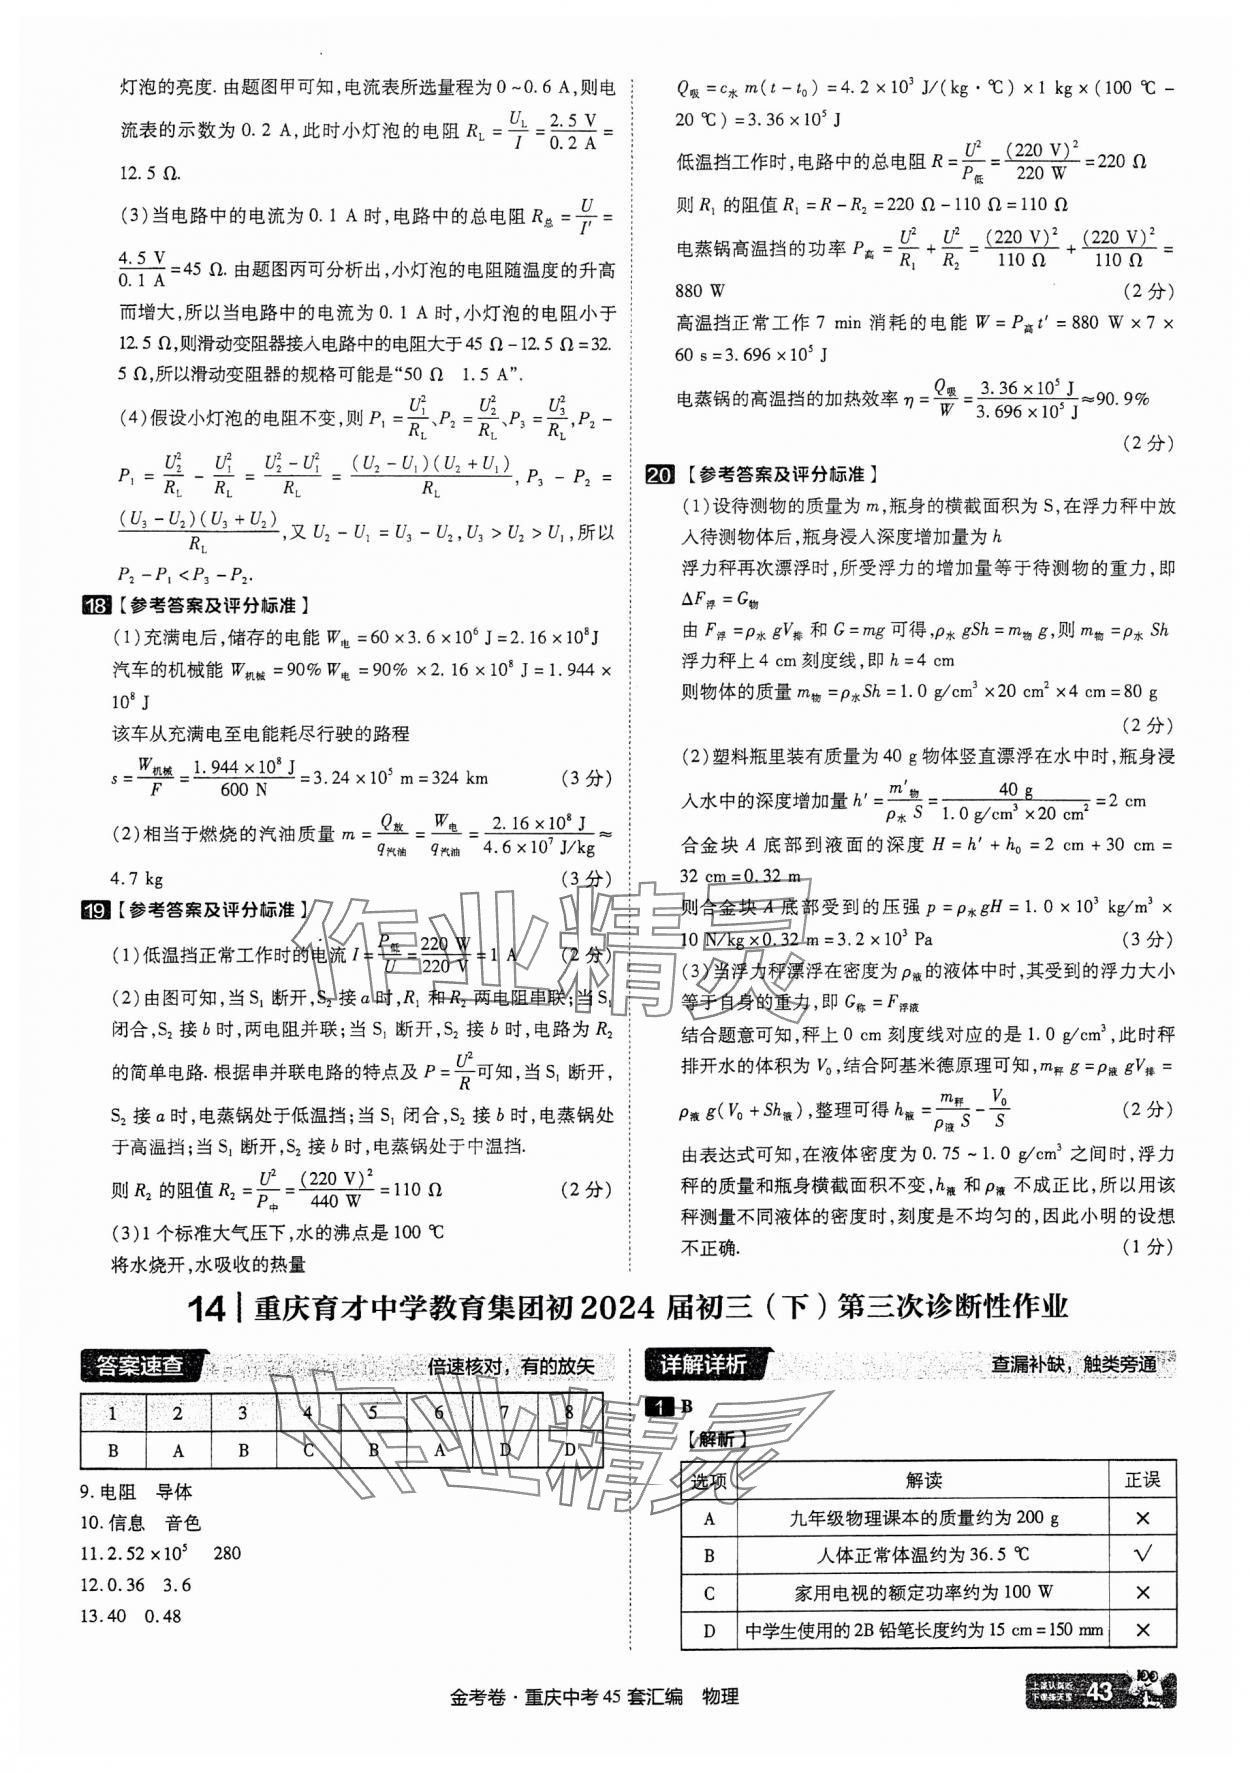 灯泡的亮度. 由题图甲可知,电流表所选量程为 0~0.6 A,则电
流表的示数为 0.2 A,此时小灯泡的电阻 R_L = U_L/I = 2.5 V/0.2 A =
12.5 Ω.
(3)当电路中的电流为 0.1 A 时,电路中的总电阻 R总 = U/I′ =
4.5 V/0.1 A = 45 Ω. 由题图丙可分析出,小灯泡的电阻随温度的升高
而增大,所以当电路中的电流为 0.1 A 时,小灯泡的电阻小于
12.5 Ω,则滑动变阻器接入电路中的电阻大于 45 Ω - 12.5 Ω = 32.
5 Ω,所以滑动变阻器的规格可能是“50 Ω 1.5 A”.
(4)假设小灯泡的电阻不变,则 P₁ = U₁²/R_L、P₂ = U₂²/R_L、P₃ = U₃²/R_L,P₂ -
P₁ = U₂²/R_L - U₁²/R_L = (U₂² - U₁²)/R_L = (U₂ - U₁)(U₂ + U₁)/R_L, P₃ - P₂ =
(U₃ - U₂)(U₃ + U₂)/R_L,又 U₂ - U₁ = U₃ - U₂,U₃ > U₂ > U₁,所以
P₂ - P₁ < P₃ - P₂.
18【参考答案及评分标准】
(1)充满电后,储存的电能 W电 = 60 × 3.6 × 10⁶ J = 2.16 × 10⁸ J
汽车的机械能 W机械 = 90% W电 = 90% × 2.16 × 10⁸ J = 1.944 ×
10⁸ J
该车从充满电至电能耗尽行驶的路程
s = W机械/F = 1.944 × 10⁸ J/600 N = 3.24 × 10⁵ m = 324 km (3 分)
(2)相当于燃烧的汽油质量 m = Q放/q汽油 = W电/q汽油 = 2.16 × 10⁸ J/4.6 × 10⁷ J/kg ≈
4.7 kg (3 分)
19【参考答案及评分标准】
(1)低温挡正常工作时的电流 I = P低/U = 220 W/220 V = 1 A (2 分)
(2)由图可知,当 S₁ 断开,S₂ 接 a 时,R₁ 和 R₂ 两电阻串联;当 S₁
闭合,S₂ 接 b 时,两电阻并联;当 S₁ 断开,S₂ 接 b 时,电路为 R₂
的简单电路. 根据串并联电路的特点及 P = U²/R 可知,当 S₁ 断开,
S₂ 接 a 时,电蒸锅处于低温挡;当 S₁ 闭合,S₂ 接 b 时,电蒸锅处
于高温挡;当 S₁ 断开,S₂ 接 b 时,电蒸锅处于中温挡.
则 R₂ 的阻值 R₂ = U²/P中 = (220 V)²/440 W = 110 Ω (2 分)
(3)1 个标准大气压下,水的沸点是 100 ℃
将水烧开,水吸收的热量
Q吸 = c水 m(t - t₀) = 4.2 × 10³ J/(kg·℃) × 1 kg × (100 ℃ -
20 ℃) = 3.36 × 10⁵ J
低温挡工作时,电路中的总电阻 R = U²/P低 = (220 V)²/220 W = 220 Ω
则 R₁ 的阻值 R₁ = R - R₂ = 220 Ω - 110 Ω = 110 Ω
电蒸锅高温挡的功率 P高 = U²/R₁ + U²/R₂ = (220 V)²/110 Ω + (220 V)²/110 Ω =
880 W (2 分)
高温挡正常工作 7 min 消耗的电能 W = P高 t′ = 880 W × 7 ×
60 s = 3.696 × 10⁵ J
电蒸锅的高温挡的加热效率 η = Q吸/W = 3.36 × 10⁵ J/3.696 × 10⁵ J ≈ 90.9%
(2 分)
20【参考答案及评分标准】
(1)设待测物的质量为 m,瓶身的横截面积为 S,在浮力秤中放
入待测物体后,瓶身浸入深度增加量为 h
浮力秤再次漂浮时,所受浮力的增加量等于待测物的重力,即
ΔF浮 = G物
由 F浮 = ρ水 gV排 和 G = mg 可得,ρ水 gSh = m物 g,则 m物 = ρ水 Sh
浮力秤上 4 cm 刻度线,即 h = 4 cm
则物体的质量 m物 = ρ水Sh = 1.0 g/cm³ × 20 cm² × 4 cm = 80 g
(2 分)
(2)塑料瓶里装有质量为 40 g 物体竖直漂浮在水中时,瓶身浸
入水中的深度增加量 h′ = m′物/ρ水 S = 40 g/1.0 g/cm³ × 20 cm² = 2 cm
合金块 A 底部到液面的深度 H = h′ + h₀ = 2 cm + 30 cm =
32 cm = 0.32 m
则合金块 A 底部受到的压强 p = ρ水gH = 1.0 × 10³ kg/m³ ×
10 N/kg × 0.32 m = 3.2 × 10³ Pa (3 分)
(3)当浮力秤漂浮在密度为 ρ液 的液体中时,其受到的浮力大小
等于自身的重力,即 G称 = F浮液
结合题意可知,秤上 0 cm 刻度线对应的是 1.0 g/cm³,此时秤
排开水的体积为 V₀,结合阿基米德原理可知,m秤 g = ρ液 gV排 =
ρ液 g(V₀ + Sh液),整理可得 h液 = m秤/ρ液 S - V₀/S (2 分)
由表达式可知,在液体密度为 0.75~1.0 g/cm³ 之间时,浮力
秤的质量和瓶身横截面积不变,h液 和 ρ液 不成正比,所以用该
秤测量不同液体的密度时,刻度是不均匀的,因此小明的设想
不正确. (1 分)
14 | 重庆育才中学教育集团初 2024 届初三（下）第三次诊断性作业
答案速查 倍速核对，有的放矢
1 2 3 4 5 6 7 8
B A B C B A D D
9. 电阻 导体
10. 信息 音色
11. 2.52 × 10⁵ 280
12. 0.36 3.6
13. 40 0.48
详解详析 查漏补缺，触类旁通
1 B
【解析】
选项 解读 正误
A 九年级物理课本的质量约为 200 g ×
B 人体正常体温约为 36.5 ℃ √
C 家用电视的额定功率约为 100 W ×
D 中学生使用的 2B 铅笔长度约为 15 cm = 150 mm ×
金考卷·重庆中考 45 套汇编 物理
43
作业精灵
作业精灵